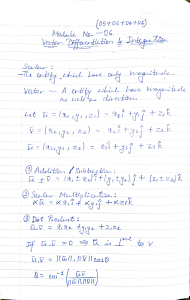 (05+06+04+06)
Module No - 06
Vector Differentiation & Integration
Scalar :-
The entity which have only magnitude.
Vector - A entity which have magnitude
as well as direction.
Let ū = (x₁, y₁, z₁) = x₁î + y₁ĵ + z₁k̂
v̄ = (x₂, y₂, z₂) = x₂î + y₂ĵ + z₂k̂
① Addition / Subtraction:
ū ± v̄ = (x₁ ± x₂)î + (y₁ ± y₂)ĵ + (z₁ ± z₂)k̂
② Scalar Multiplication:
αū = αx₁î + αy₁ĵ + αz₁k̂
③ Dot Product:
ū.v̄ = x₁x₂ + y₁y₂ + z₁z₂
If ū.v̄ = 0 ⇒ ū is ⊥ to v
ū.v̄ = ||ū||.||v̄|| cosθ
θ = cos⁻¹ (ū.v̄ / ||ū||.||v̄||)